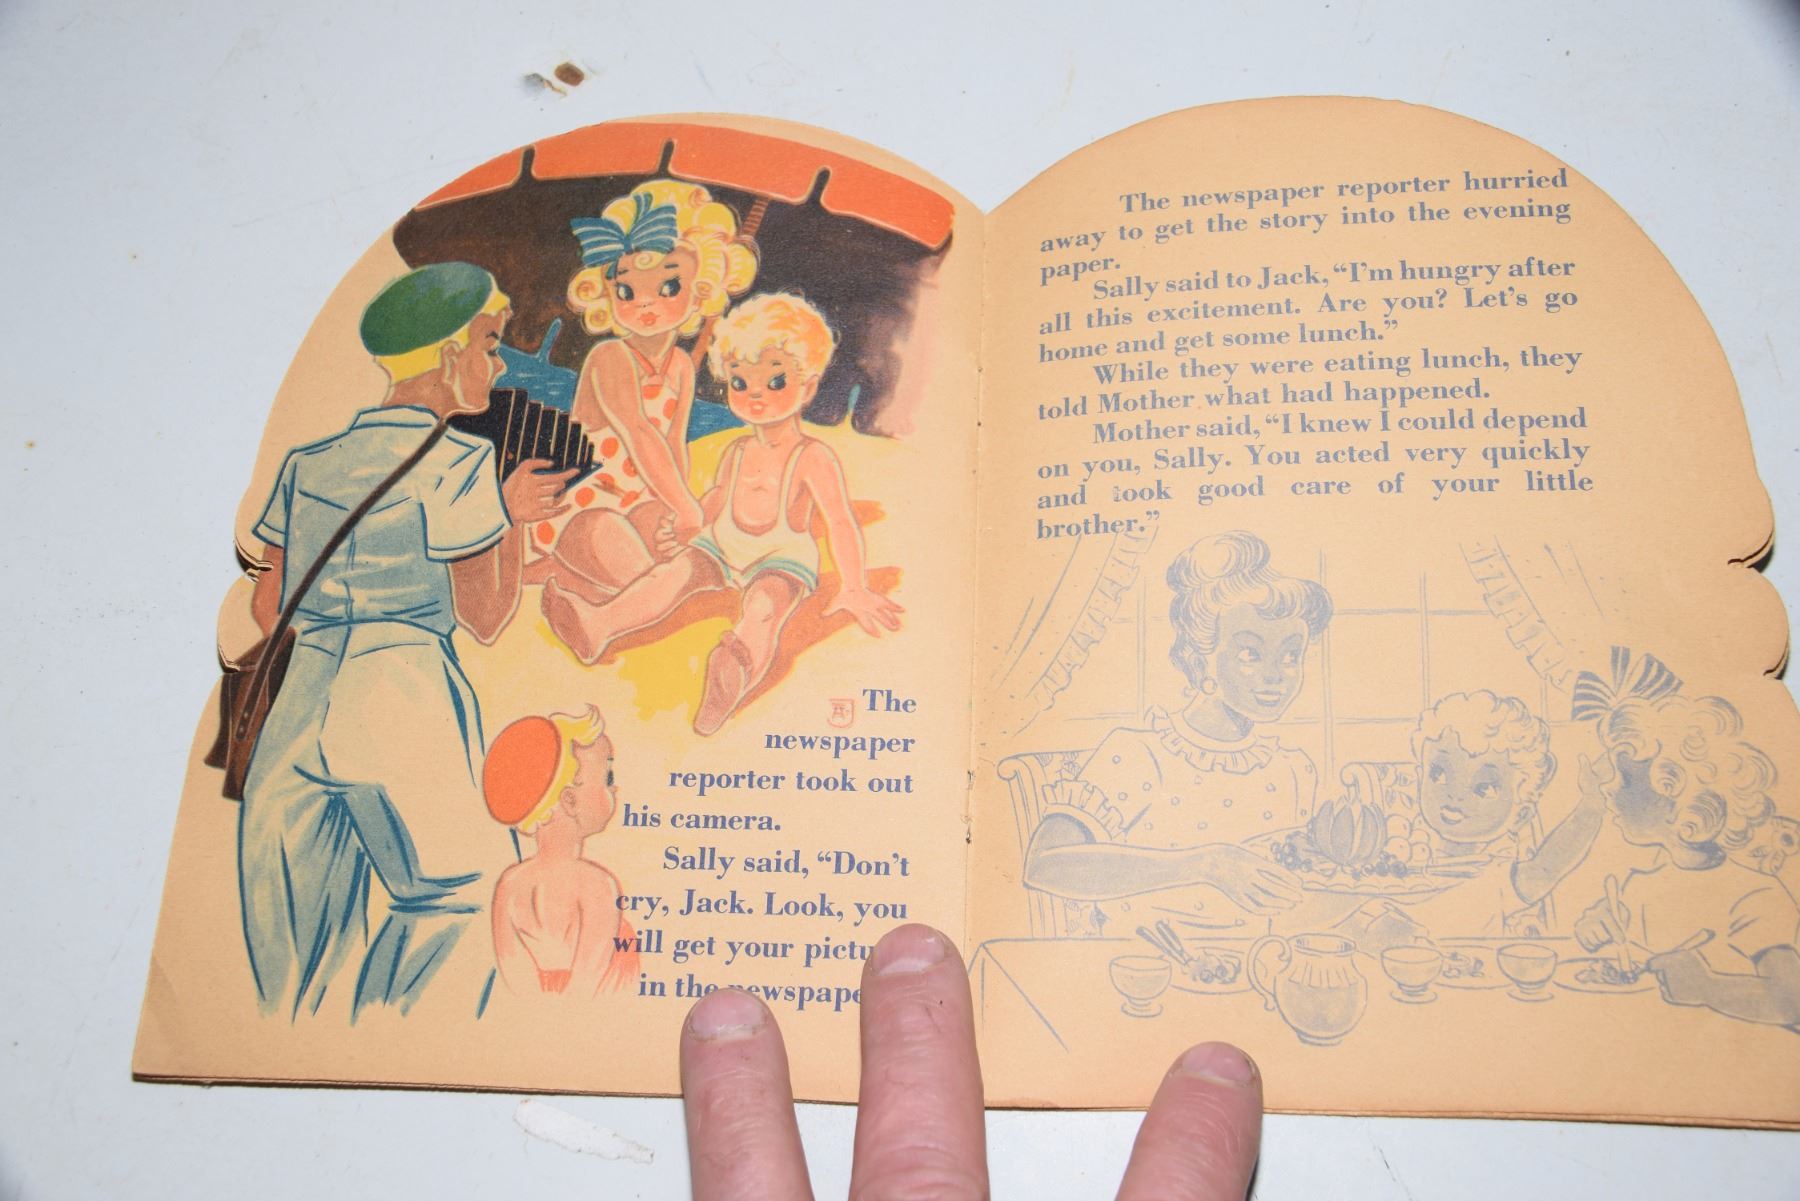 The
newspaper
reporter took out
his camera.
Sally said, “Don’t
cry, Jack. Look, you
will get your
in the
The newspaper reporter hurried
away to get the story into the evening
paper.
Sally said to Jack, “I’m hungry after
all this excitement. Are you? Let’s go
home and get some lunch.”
While they were eating lunch, they
told Mother what had happened.
Mother said, “I knew I could depend
on you, Sally. You acted very quickly
and took good care of your little
brother.”